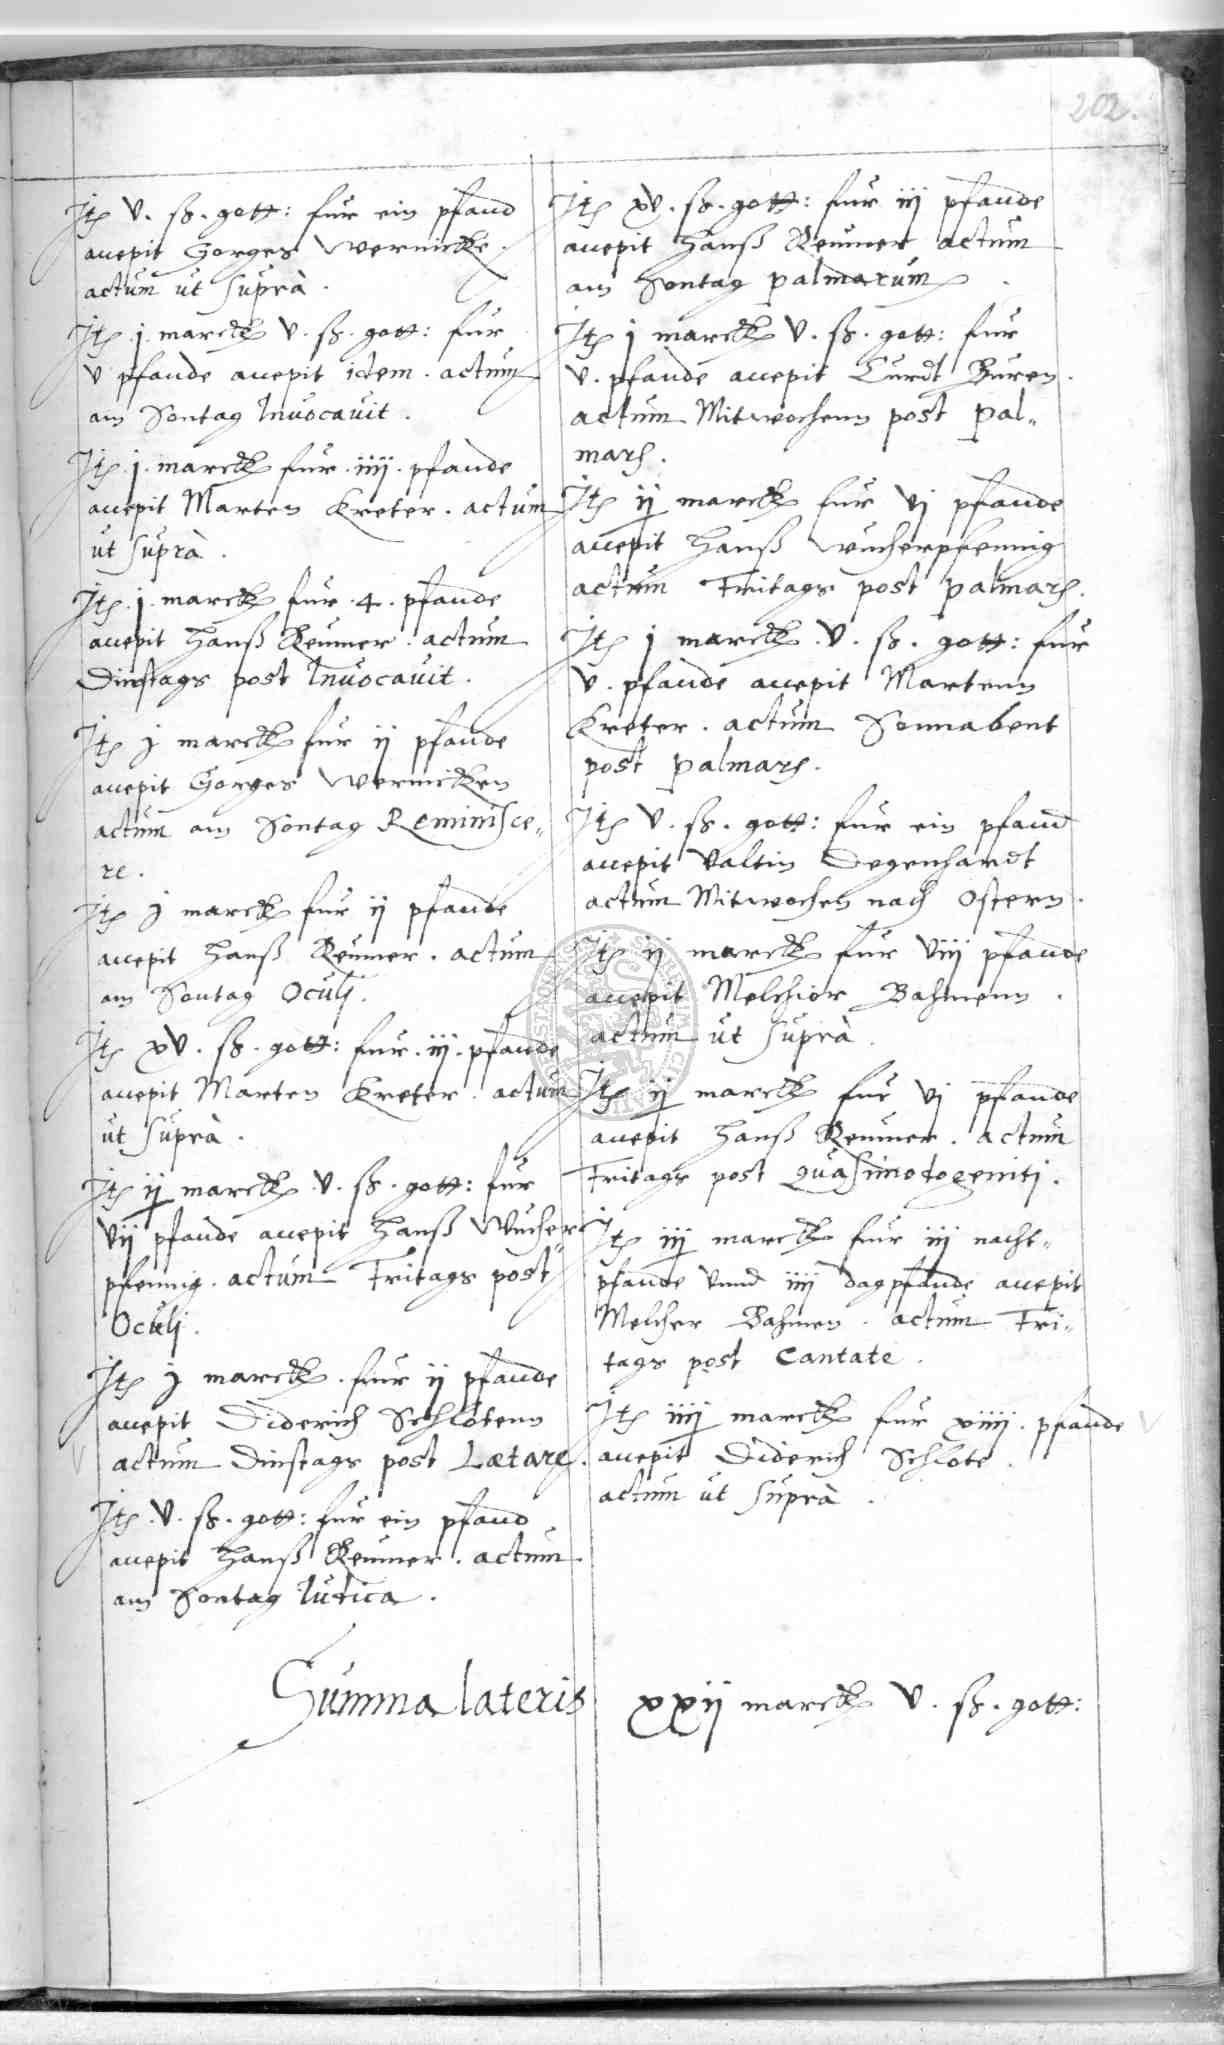 202.
Itē v. ß. gott: fur ein pfand
accepit Gorges Wernicke.
actum ut suprà.
Itē j. marck v. ß. gott: fur
v pfande accepit idem. actum
am Sontag Invocavit.
Itē j. marck fur iiij. pfande
accepit Marten Kreter. actum
ut suprà.
Itē j. marck fur .4. pfande
accepit Hanß Reumer. actum
Dinstags post Invocavit.
Itē j marck fur ij pfande
accepit Gorges Wernicken
actum am Sontag Reminisce„
re.
Itē j marck fur ij pfande
accepit Hanß Reumer. actum
am Sontag Oculj.
Itē xv. ß. gott: fur iij. pfande
accepit Marten Kreter. actum
ut suprà.
Itē ij marck v. ß. gott: fur
vij pfande accepit Hanß Wucher„
pfennig. actum Fritags post
Oculj.
Itē j marck. fur ij pfande
accepit Diderich Schlotenn
actum Dinstags post Lætare.
Itē v. ß. gott: fur ein pfand
accepit Hanß Reumer. actum
am Sontag Iudica.
Itē xv. ß. gott: fur iij pfande
accepit Hanß Reumer actum
am Sontag palmarum.
Itē j marck v. ß. gott: fur
v. pfande accepit Curdt Buren.
actum Mitwochenn post pal„
marū.
Itē ij marck fur vj pfande
accepit Hanß Wucherpfennig
actum Fritags post palmarū.
Itē j marck v. ß. gott: fur
v. pfande accepit Martenn
Kreter. actum Sonnabent
post palmarū.
Itē v. ß. gott: fur ein pfand
accepit Valtin Degenhardt
actum Mitwochen nach Ostern.
Itē ij marck fur viij pfande
accepit Melchior Bahmenn.
actum ut suprà.
Itē ij marck fur vj pfande
accepit Hanß Reumer. actum
Fritags post quasimodogenitj.
Itē iij marck fur iij nacht„
pfande vnnd iiij dagpfande accepit
Melcher Bahmen. actum Fri„
tags post Cantate.
Itē iiij marck fur xiiij. pfande
accepit Diderich Schlote.
actum ut suprà.
Summa lateris xxij marck v. ß. gott: